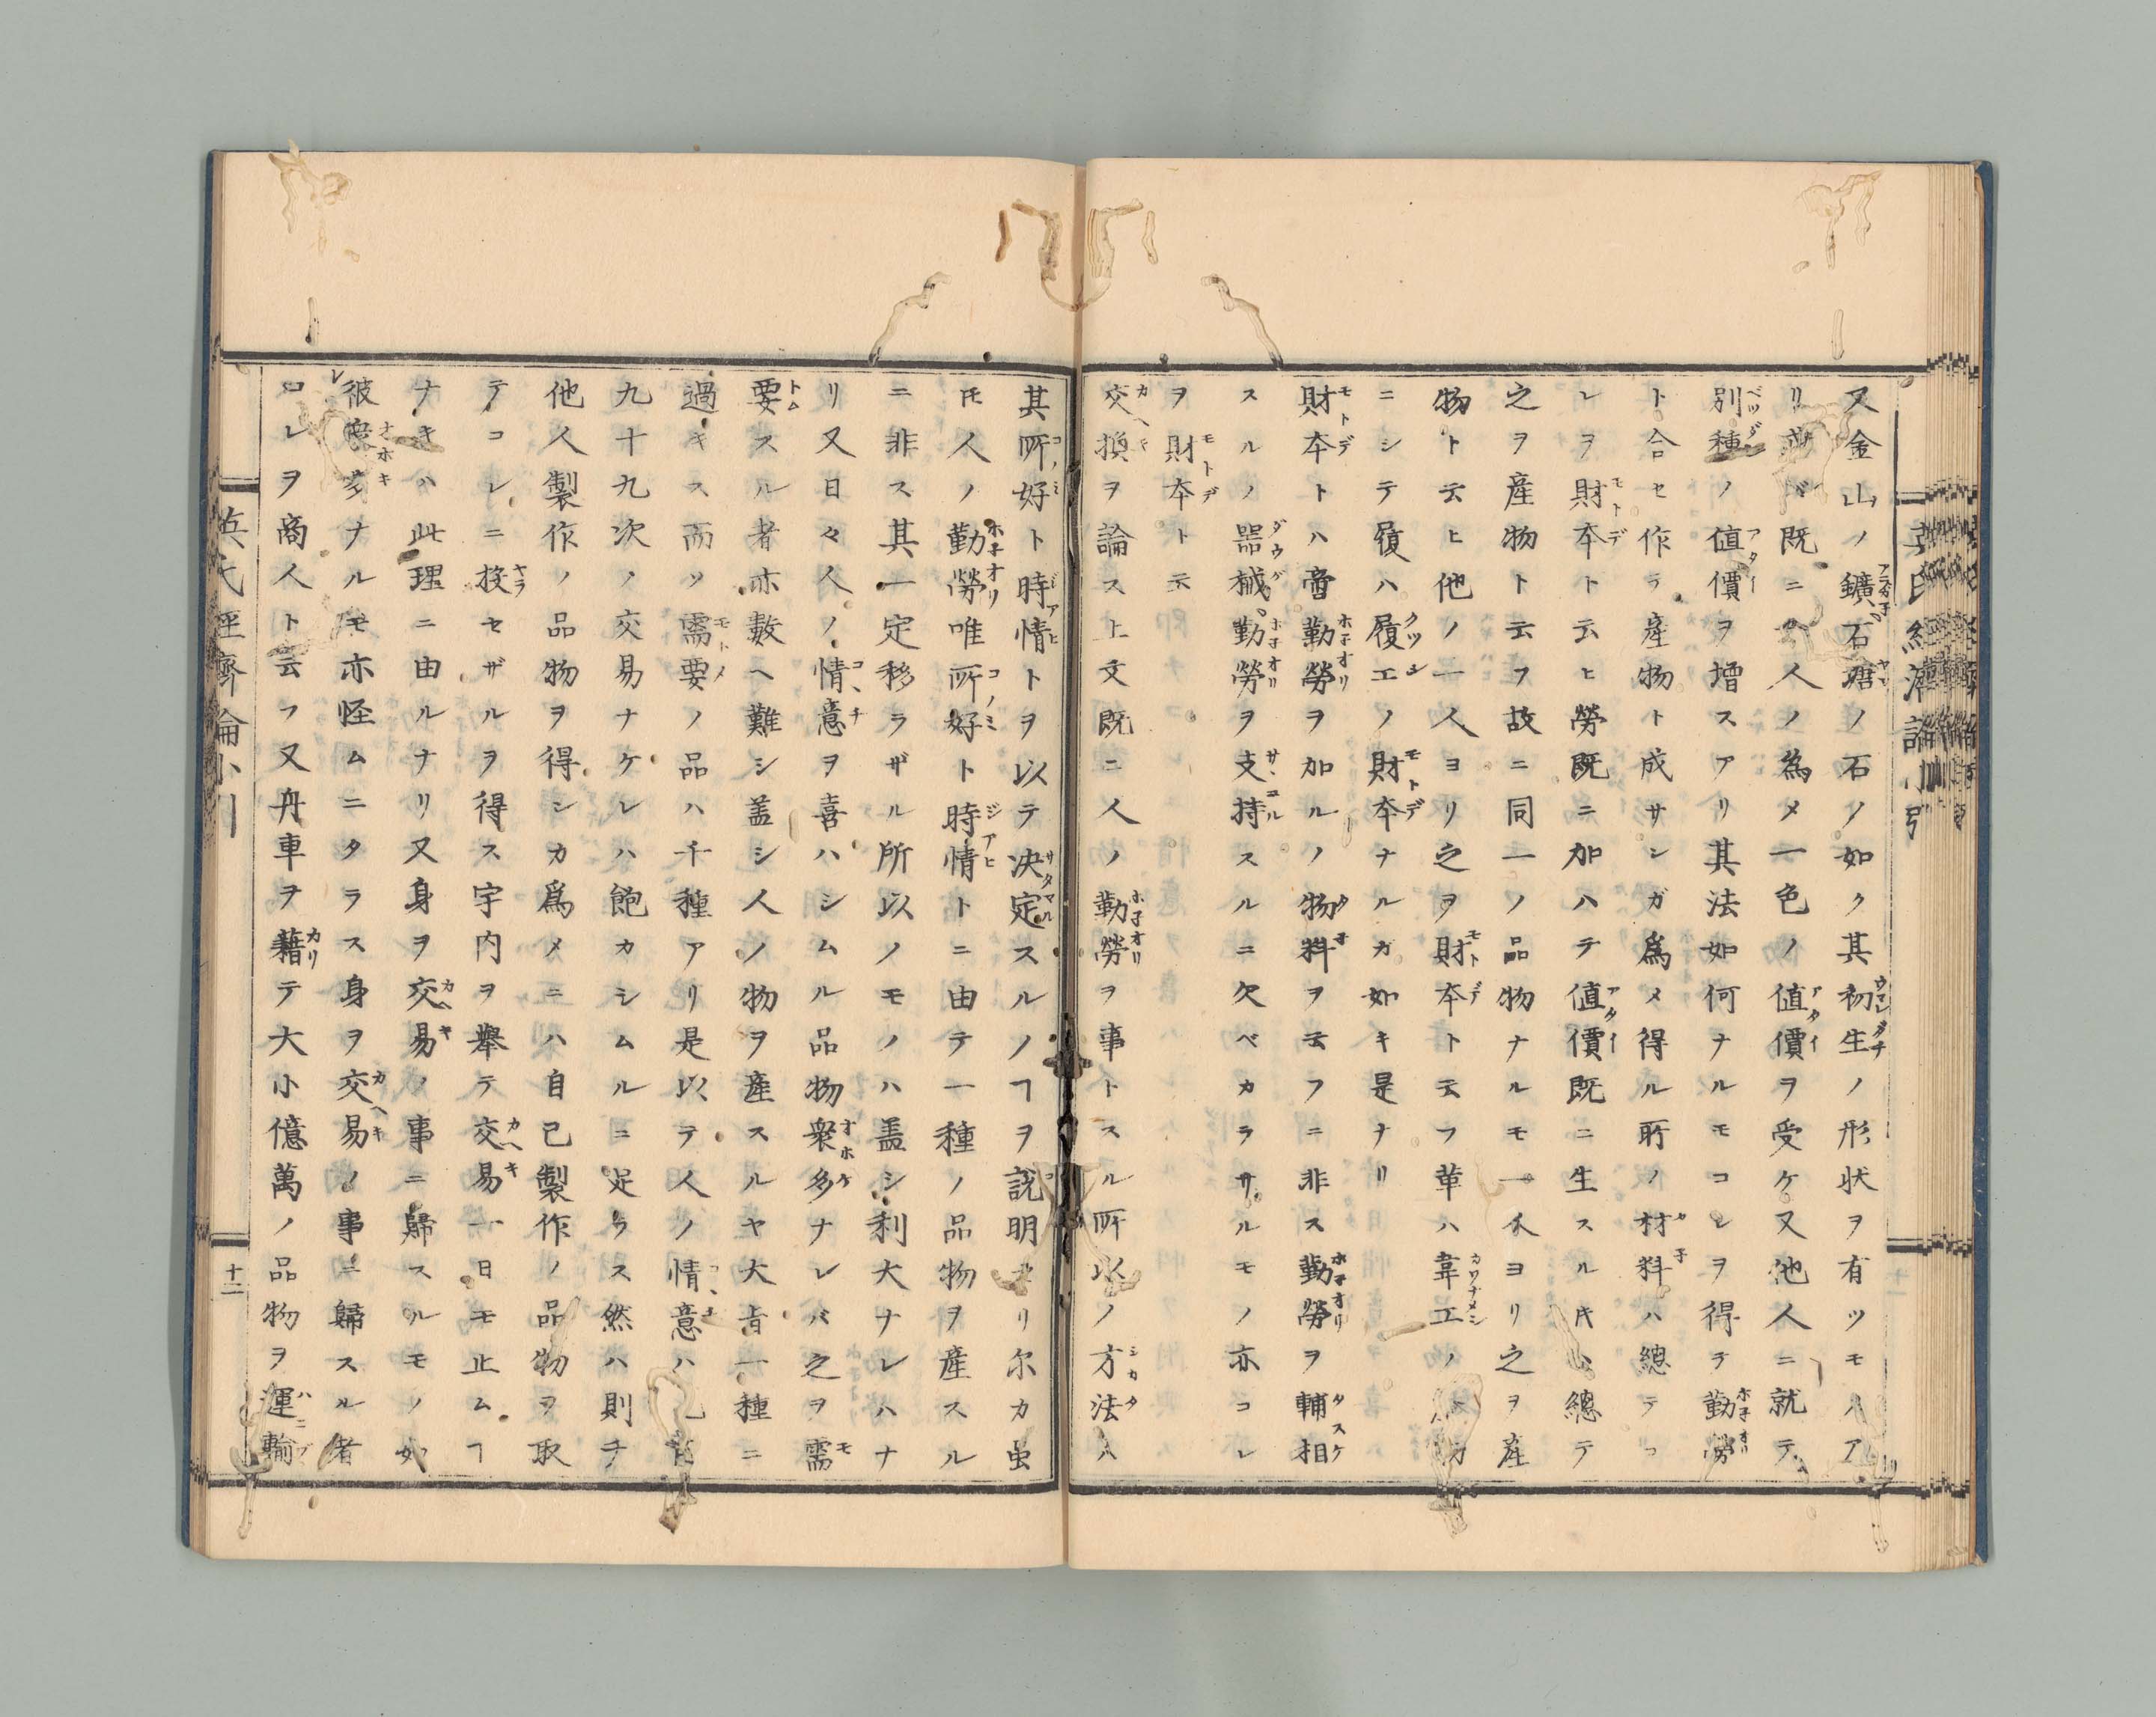 又金山ノ鑛石礶ノ石ノ如ク其初生ノ形状ヲ有ツモノア
リ或ハ既ニ人ノ為メ一色ノ値價ヲ受ケ又他人ニ就テ
別種ノ値價ヲ增スアリ其法如何ナルモコレヲ得テ勤勞
ト合セ作ラ産物ト成サンガ爲メ得ル所ノ材料ハ總テコ
レヲ財本ト云ヒ勞既ニ加ハテ値價既ニ生スル𪜈ハ總テ
之ヲ産物ト云フ故ニ同一ノ品物ナルモ一人ヨリ之ヲ産
物ト云ヒ他ノ一人ヨリ之ヲ財本ト云フ革ハ韋工ノ
ニシテ履ハ履工ノ財本ナルガ如キ是ナリ
財本トハ啻勤勞ヲ加ルノ物料ヲ云フニ非ス勤勞ヲ輔相
スルノ器械勤勞ヲ支持スルニ欠ベカラサルモノ亦コレ
ヲ財本ト云
交換ヲ論ス上文既ニ人ノ勤勞ヲ事トスル所以ノ方法ハ
其所好ト時情トヲ以テ决定スルノヿヲ説明セリ尔カ虽
𪜈人ノ勤勞唯所好ト時情トニ由テ一種ノ品物ヲ産スル
ニ非ス其一定移ラザル所以ノモノハ盖シ利大ナレハナ
リ又日々人ノ情意ヲ喜ハシムル品物衆多ナレバ之ヲ需
要スル者亦數ヘ難シ盖シ人ノ物ヲ産スルヤ大㫖一種ニ
過キス而ソ需要ノ品ハ千種アリ是以テ人ノ情意ハ
九十九次ノ交易ナケレハ飽カシムルニ足ラス然ハ則チ
他人製作ノ品物ヲ得ンカ爲メニハ自己製作ノ品物ヲ取
テコレニ投セザルヲ得ス宇内ヲ擧テ交易一日モ止ムヿ
ナキハ此理ニ由ルナリ又身ヲ交易ノ事ニ歸スルモノ如
彼衆多ナルモ亦怪ムニタラス身ヲ交易ノ事ニ歸スル者
コレヲ商人ト云フ又舟車ヲ藉テ大小億萬ノ品物ヲ運輸
英氏經濟論小引
十一